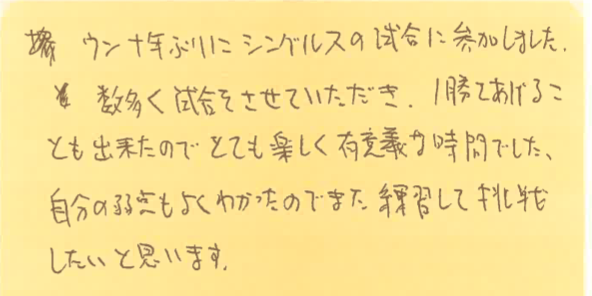 ウン十年ぶりにシングルスの試合に参加しました.
数多く試合をさせていただき. 1勝てあげるこ
とも出来たのでとても楽しく有意義な時間でした、
自分の弱点もよくわかったのでまた練習して挑戦
したいと思います.